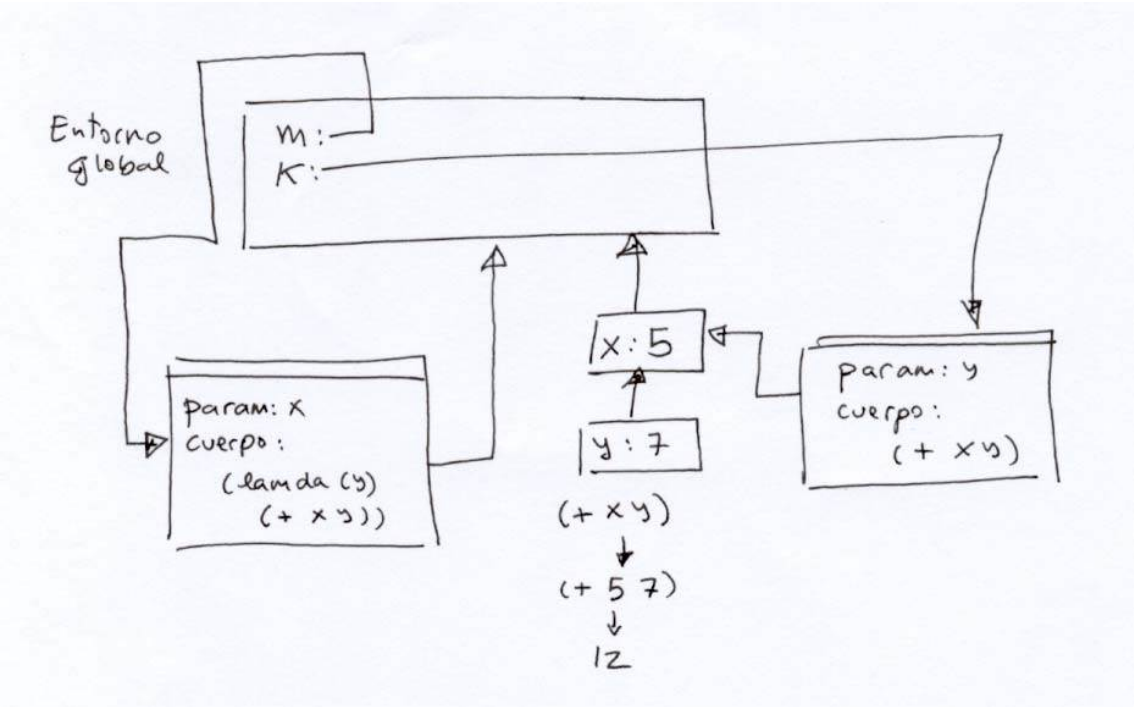 Entorno
global
m:
K:
param: x
cuerpo:
(lamda (y)
(+ x y))
x: 5
y: 7
(+ x y)
(+ 5 7)
12
param: y
cuerpo:
(+ x y)